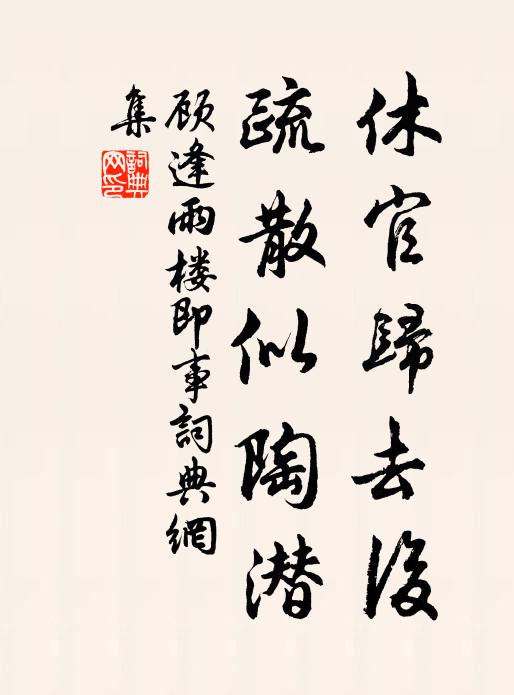 休官歸去後
疏散似陶潜
顾逢雨楼即事詞典網
集
詞典網印